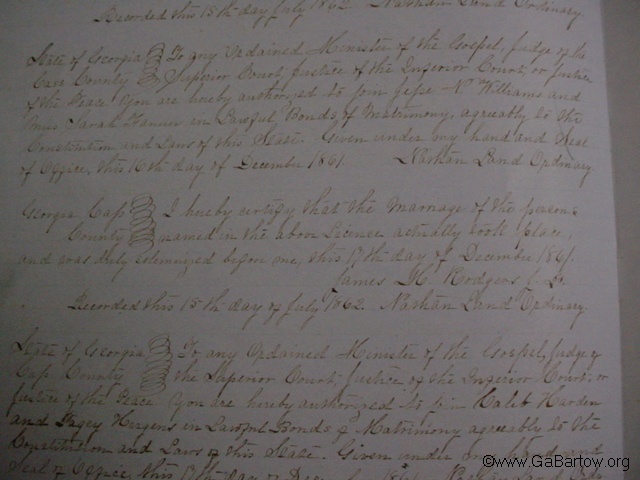 Recorded this 15th day July 1862. Nathan Land Ordinary.
State of Georgia To any Ordained Minister of the Gospel, Judge of the
Cass County Superior Court, Justice of the Inferior Court, or Justice
of the Peace You are hereby authorized to join Jesse N. Williams and
Miss Sarah in Lawful Bonds of Matrimony, agreeably to the
Constitution and Laws of this State. Given under my hand and Seal
of Office, this 16th day of December 1861. Nathan Land Ordinary
Georgia Cass I hereby certify that the Marriage of the persons
County named in the above License actually took place,
and was duly solemnized before me, this 17th day of December 1861.
James H. Rodgers J.
Recorded this 15th day of July 1862. Nathan Land Ordinary.
State of Georgia To any Ordained Minister of the Gospel, Judge of
Cass County the Superior Court, Justice of the Inferior Court, or
Justice of the Peace You are hereby authorized to join Kaleb Harden
and in Lawful Bonds of Matrimony agreeably to the
Constitution and Laws of this State. Given under my hand and
Seal of Office, this 17th day of
©www.GaBartow.org